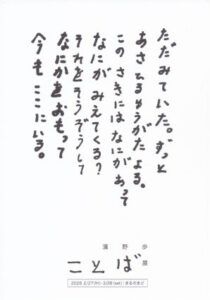 ただみていた。ずっと
あさひるゆうがたよる、
このさきにはなにがあって
なにがみえてくる?
それをそうぞうして
なにかをおもって
今もここにいる。
野 歩
ことば 展